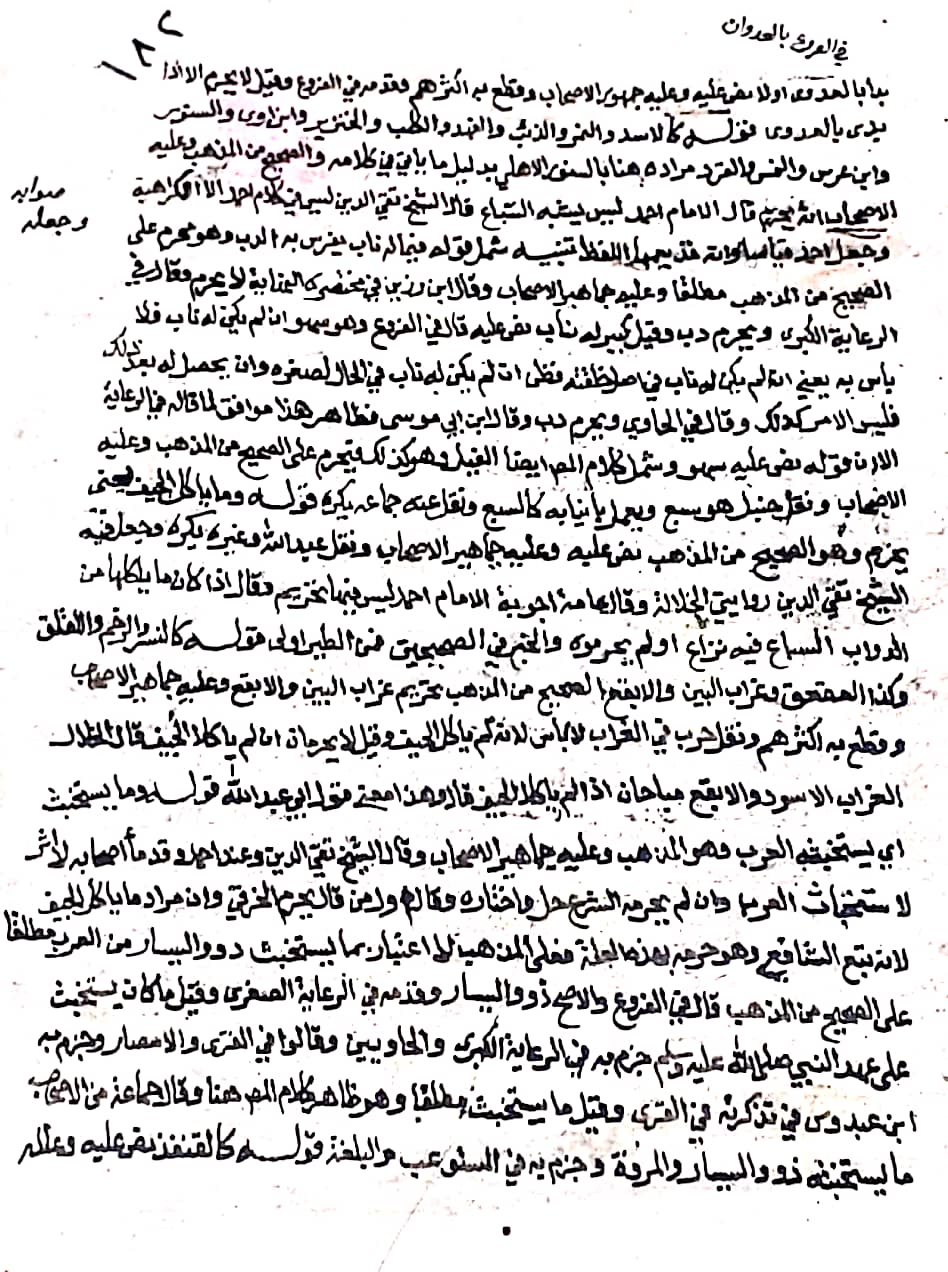 في الفروع بالعدوان
١٨٢
يبدأ بالعدوى اولا نص عليه وعليه جمهور الاصحاب وقطع به أكثرهم وقدمه في الفروع وقيل لا يحرم الا اذا
يبدى بالعدوى قوله كالاسد والنمر والذئب والفهد والكلب والخنزير وابن اوى والسنور
وابن عرس والنمس والقرد مراده هنا بالسنور الاهلي بدليل ما ياتي في كلامه والصحيح من المذهب وعليه
الاصحاب انه يحرم قال الامام احمد ليس يشبه السباع قال الشيخ تقي الدين ليس في كلام احمد الا الكراهية
صوابه
وجعله
وجعل احمد قياسا وانه قد يعمها اللفظ تنبيه شمل قوله فيما له ناب يفرس به الدب وهو محرم على
الصحيح من المذهب مطلقا وعليه جماهير الاصحاب وقال ابن رزين في مختصره النهاية لا يحرم وقال في
الرعاية الكبرى ويحرم دب وقيل كبير له ناب نص عليه قال في الفروع وهو سهو ان لم يكن له ناب فلا
باس به يعني ان لم يكن له ناب في اصل خلقته فظن ان لم يكن له ناب في الحال لصغره وان يحصل له بعد ذلك
فليس الامر كذلك وقال في الحاوي ويحرم دب وقال ابن ابي موسى فظاهر هذا موافق لما قاله في الرعاية
الا ان قوله نص عليه سهو وشمل كلام المص ايضا الفيل وهو كذلك فيحرم على الصحيح من المذهب وعليه
الاصحاب ونقل حنبل هو سبع ويعمل بانيابه كالسبع ونقل عنه جماعه يكره قوله وما ياكل الجيف يعني
يحرم وهو الصحيح من المذهب نص عليه وعليه جماهير الاصحاب ونقل عبد الله وغيره يكره وجعل فيه
الشيخ تقي الدين روايتي الجلالة وقال عامة اجوبة الامام احمد ليس فيها تحريم وقال اذا كان ما ياكلها من
الدواب السباع فيه نزاع اولم يحرموه والخبر في الصحيحين فمن الطير اولى قوله كالنسر والرخم واللقلق
وكذا العقعق وغراب البين والابقع الصحيح من المذهب تحريم غراب البين والابقع وعليه جماهير الاصحاب
وقطع به اكثرهم ونقل حرب في الغراب لا باس لانه لم ياكل الجيف وقيل لا يحرمان ان لم ياكلا الجيف قال الخلال
الغراب الاسود والابقع مباحان اذا لم ياكلا الجيف قال وهذا معنى قول ابي عبد الله قوله وما يستخبث
اي يستخبثه العرب وهو المذهب وعليه جماهير الاصحاب وقال الشيخ تقي الدين وعند احمد وقدماء اصحابه لا أثر
لاستخباث العرب وان لم يحرمه الشرع حل واختاره وقال اول من قال يحرم الخرقي وان مراده ما ياكل الجيف
لانه تبع الشافعي وهو حرمه بهذه العلة فعلى المذهب الاعتبار بما يستخبث ذو واليسار من العرب مطلقا
على الصحيح من المذهب قال في الفروع والاصح ذو واليسار وقدمه في الرعاية الصغرى وقيل ما كان يستخبث
على عهد النبي صلى الله عليه وسلم جزم به في الرعاية الكبرى والحاويين وقالوا في القرى والامصار وجزم به
ابن عبدوس في تذكرته في القرى وقيل ما يستخبث مطلقا وهو ظاهر كلام المص هنا وقال جماعة من الاصحاب
ما يستخبثه ذو واليسار والمروة وجزم به في المستوعب والبلغة قوله كالقنفذ نص عليه وعلله